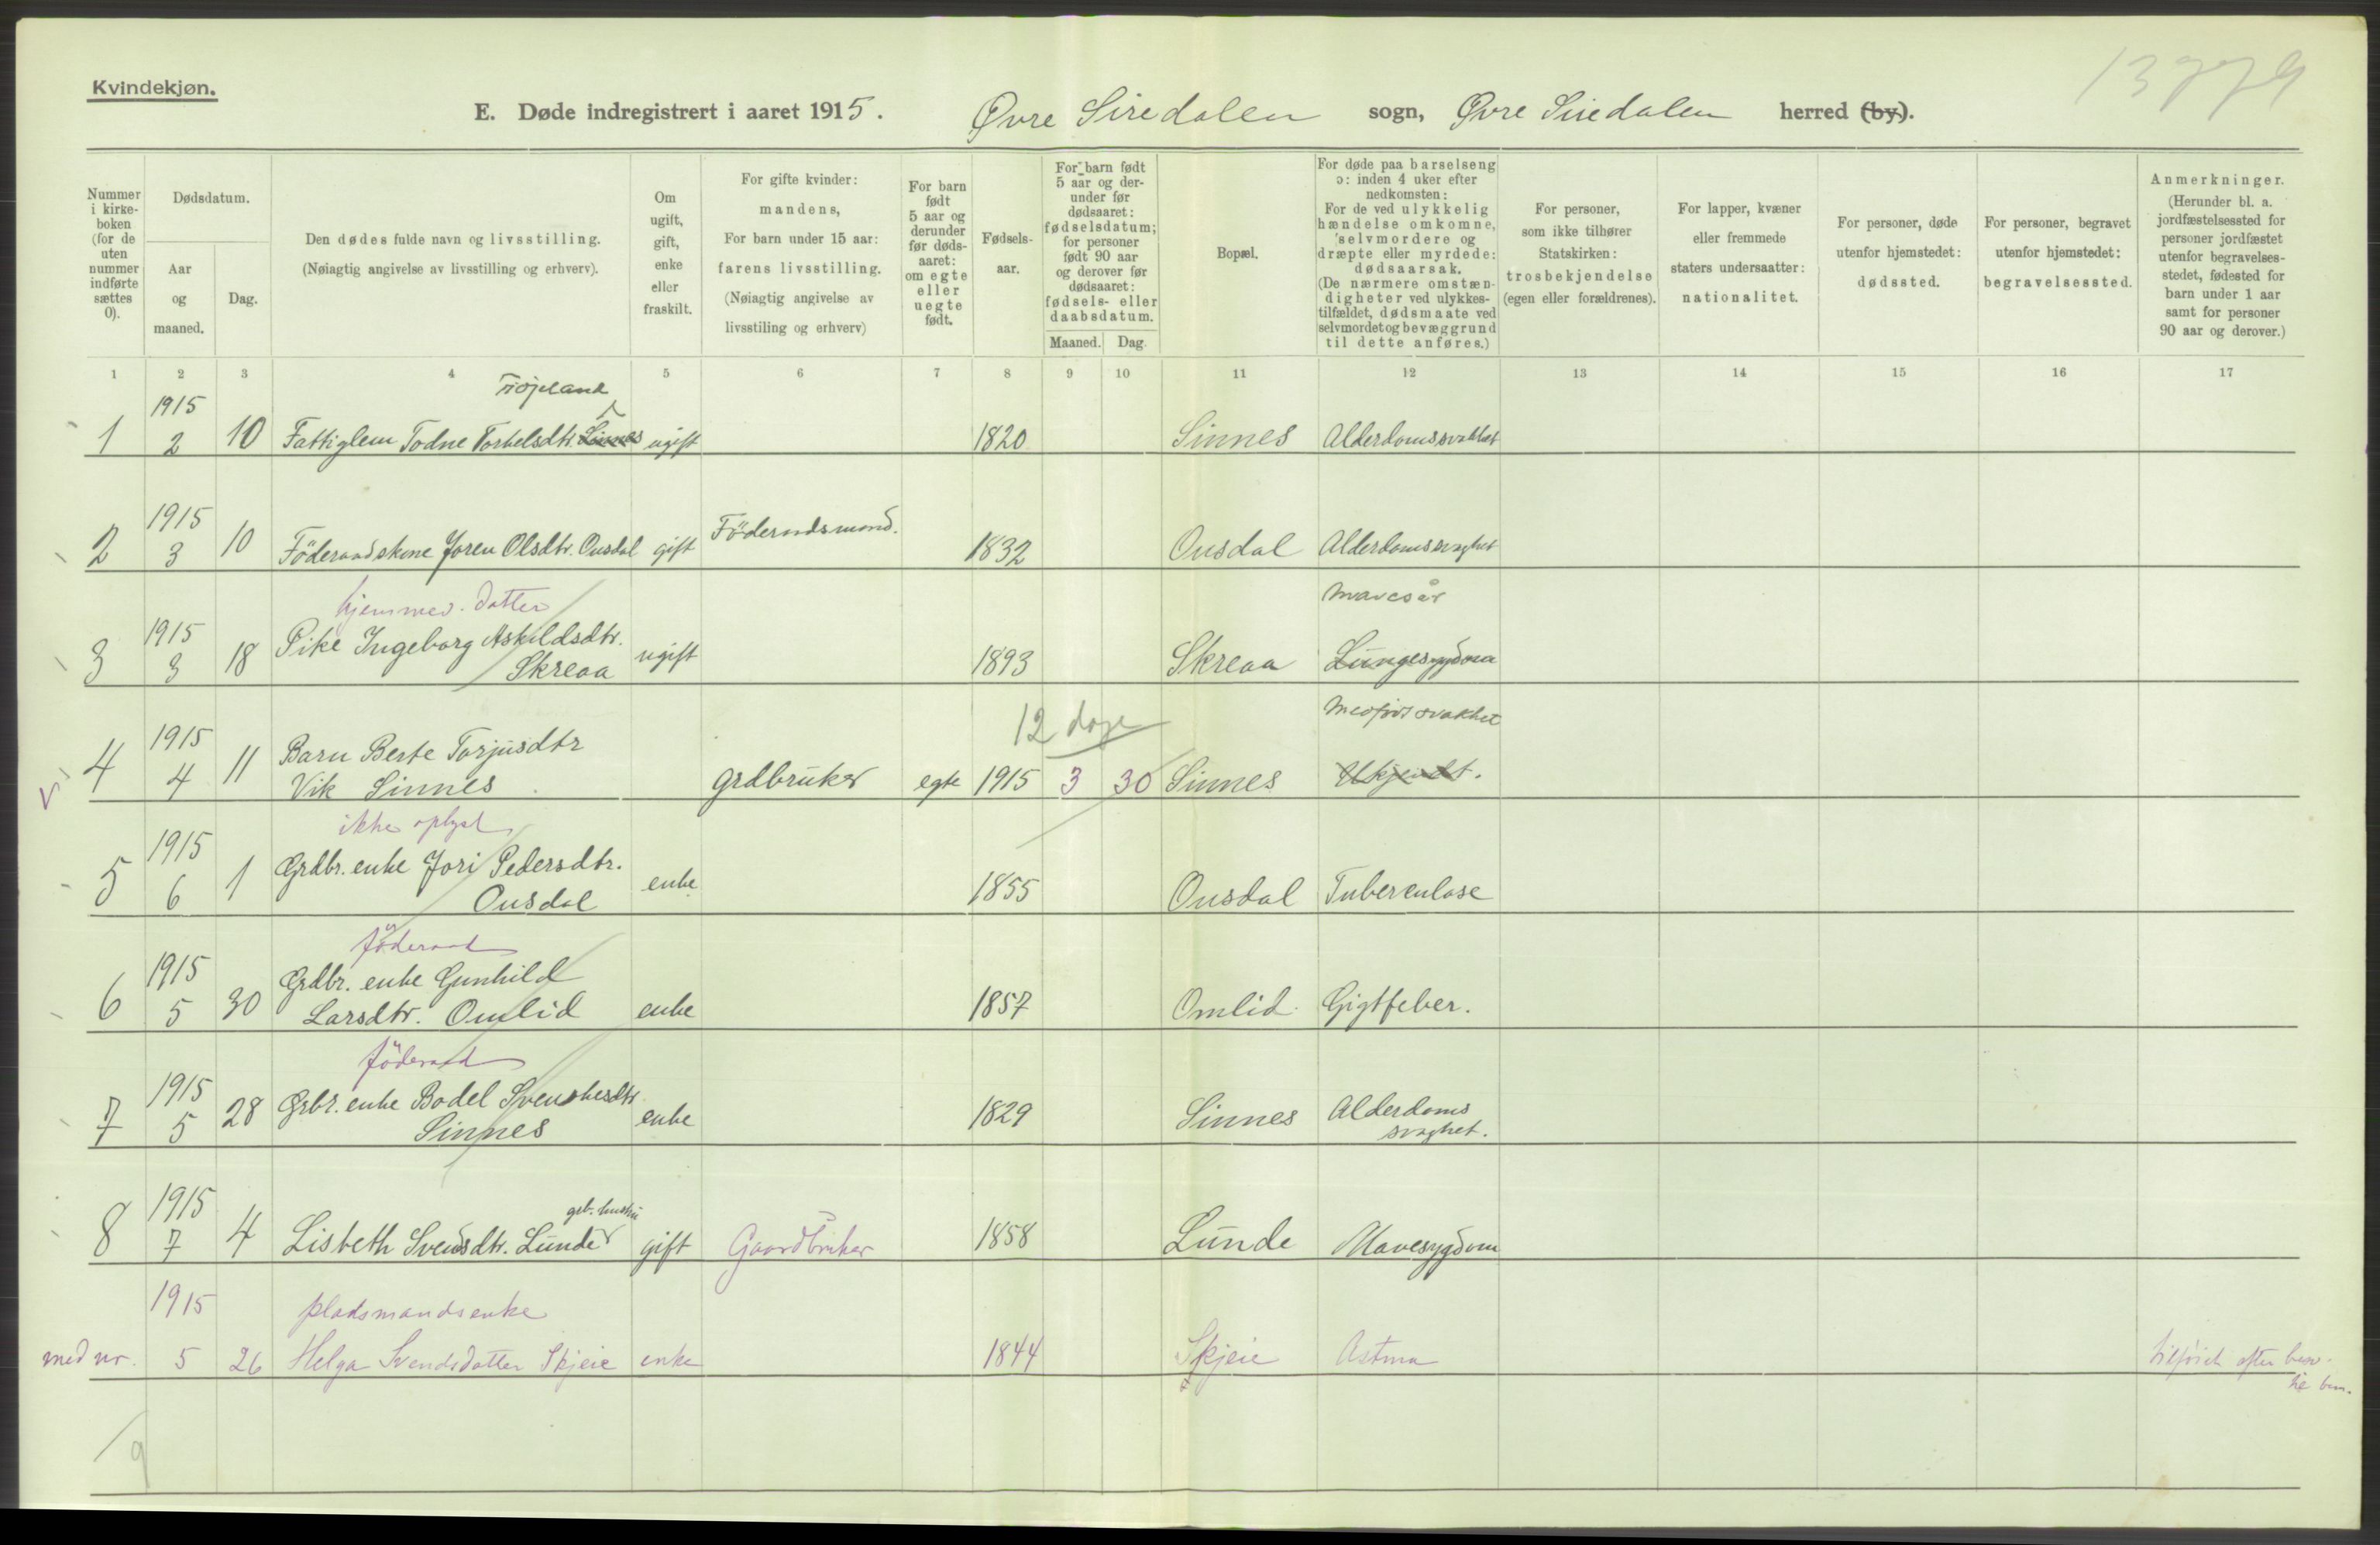 13779
Kvindekjøn.
E. Døde indregistrert i aaret 1915. Øvre Siredalen sogn, Øvre Siredalen herred (by).
Nummer i kirke-boken (for de uten nummer indførte sættes 0).
Dødsdatum.
Aar og maaned.
Dag.
Den dødes fulde navn og livsstilling.
(Nøiagtig angivelse av livsstilling og erhverv).
Om ugift, gift, enke eller fraskilt.
For gifte kvinder: mandens,
For barn under 15 aar: farens livsstilling.
(Nøiagtig angivelse av livsstiling og erhverv)
For barn født 5 aar og derunder før døds-aaret: om egte eller uegte født.
Fødsels-aar.
For barn født 5 aar og der-under før dødsaaret: fødselsdatum; for personer født 90 aar og derover før dødsaaret: fødsels- eller daabsdatum.
Maaned. Dag.
Bopæl.
For døde paa barselseng
ɔ: inden 4 uker efter
nedkomsten:
For de ved ulykkelig
hændelse omkomne,
selvmordere og
dræpte eller myrdede:
dødsaarsak.
(De nærmere omstæn-
digheter ved ulykkes-
tilfældet, dødsmaate ved
selvmordet og bevæggrund
til dette anføres.)
For personer, som ikke tilhører Statskirken: trosbekjendelse (egen eller forældrenes).
For lapper, kvæner eller fremmede staters undersaatter: nationalitet.
For personer, døde utenfor hjemstedet: dødssted.
For personer, begravet utenfor hjemstedet: begravelsessted.
Anmerkninger.
(Herunder bl. a.
jordfæstelsessted for
personer jordfæstet
utenfor begravelses-
stedet, fødested for
barn under 1 aar
samt for personer
90 aar og derover.)
1 2 3 4 5 6 7 8 9 10 11 12 13 14 15 16 17
1915
1 2 10 Fattiglem Todne Torkelsdtr. Sinnes ugift 1820 Sinnes Alderdomssvakhet
1915
2 3 10 Föderaadskone Joren Olsdtr. Ousdal gift Föderaadsmand. 1832 Ousdal Alderdomssvaghet
hjemmev. datter
Mavesår
1915
3 3 18 Pike Ingeborg Askildsdtr.
Skreaa ugift 1893 Skreaa Lungesygdom
12 dage
Medfødt svakhet
1915
4 4 11 Barn Berte Torjusdtr
Vik Sinnes grdbruker egte 1915 3 30 Sinnes Ukjendt.
ikke oplyst
1915
5 6 1 Grdbr. enke Jori Pedersdtr.
Ousdal enke 1855 Ousdal Tuberculose
föderaad
1915
6 5 30 Grdbr. enke Gunhild
Larsdtr. Omlid enke 1857 Omlid Gigtfeber.
föderaad
1915
7 5 28 Grbr. enke Bodel
Sinnes enke 1829 Sinnes Alderdoms
svaghet.
1915
8 7 4 Lisbeth Svendsdtr. Lunde gift Gaardbruker 1858 Lunde Mavesygdom
1915
pladsmandsenke
med nr. 5 26 Helga Svendsdatter Skjeie enke 1844 Skjeie Astma tilføiet efter
9